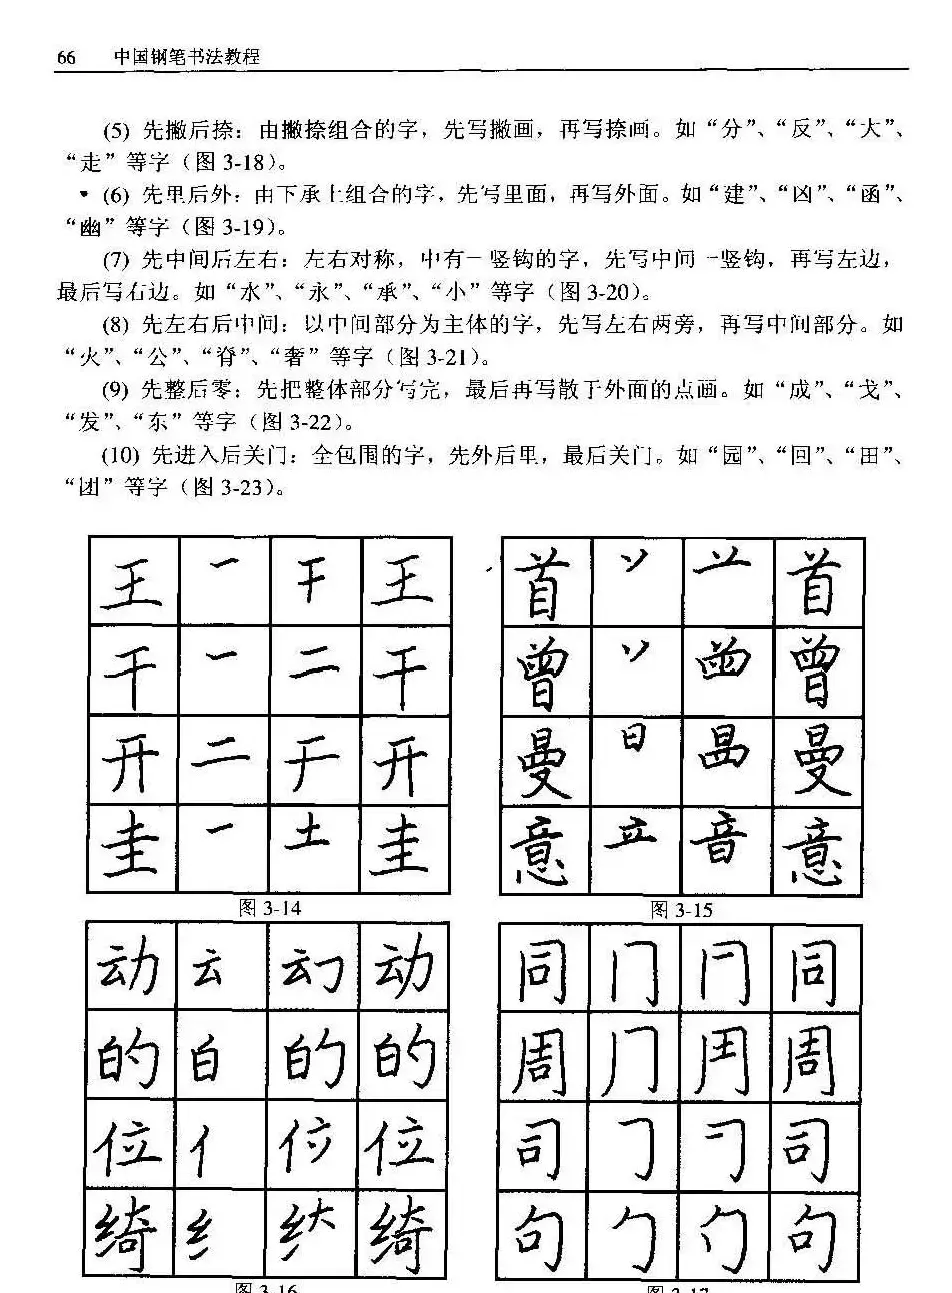 66 中国钢笔书法教程
(5) 先撇后捺：由撇捺组合的字，先写撇画，再写捺画。如“分”、“反”、“大”、
“走”等字（图 3-18）。
(6) 先里后外：由下承上组合的字，先写里面，再写外面。如“建”、“凶”、“函”、
“幽”等字（图 3-19）。
(7) 先中间后左右：左右对称，中有一竖钩的字，先写中间一竖钩，再写左边，
最后写右边。如“水”、“永”、“承”、“小”等字（图 3-20）。
(8) 先左右后中间：以中间部分为主体的字，先写左右两旁，再写中间部分。如
“火”、“公”、“脊”、“奢”等字（图 3-21）。
(9) 先整后零：先把整体部分写完，最后再写散于外面的点画。如“成”、“戈”、
“发”、“东”等字（图 3-22）。
(10) 先进入后关门：全包围的字，先外后里，最后关门。如“园”、“回”、“田”、
“团”等字（图 3-23）。
王 一 干 王
干 一 二 干
开 二 于 开
圭 一 土 圭
图 3-14
首 丷 䒑 首
曾 丷 曾
曼 日 曼
意 立 音 意
图 3-15
动 云 动
的 白 的 的
位 亻 位
绮 纟 绮
图 3-16
同 冂 同
周 冂 周
司 司
句 勹 句
图 3-17